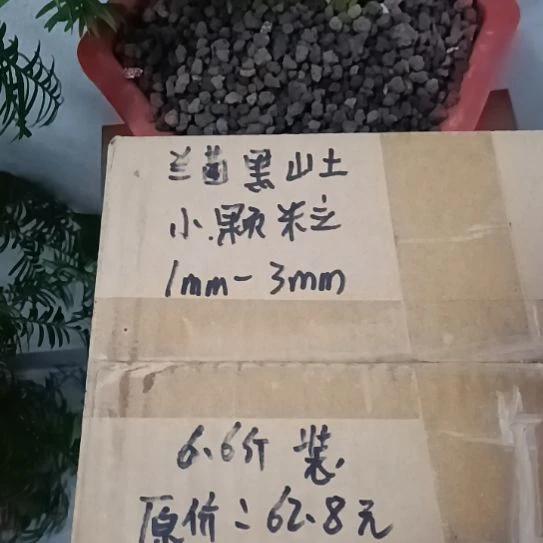 兰菌黑山土
小颗粒
1mm-3mm
6.6斤 装
原价:62.8元